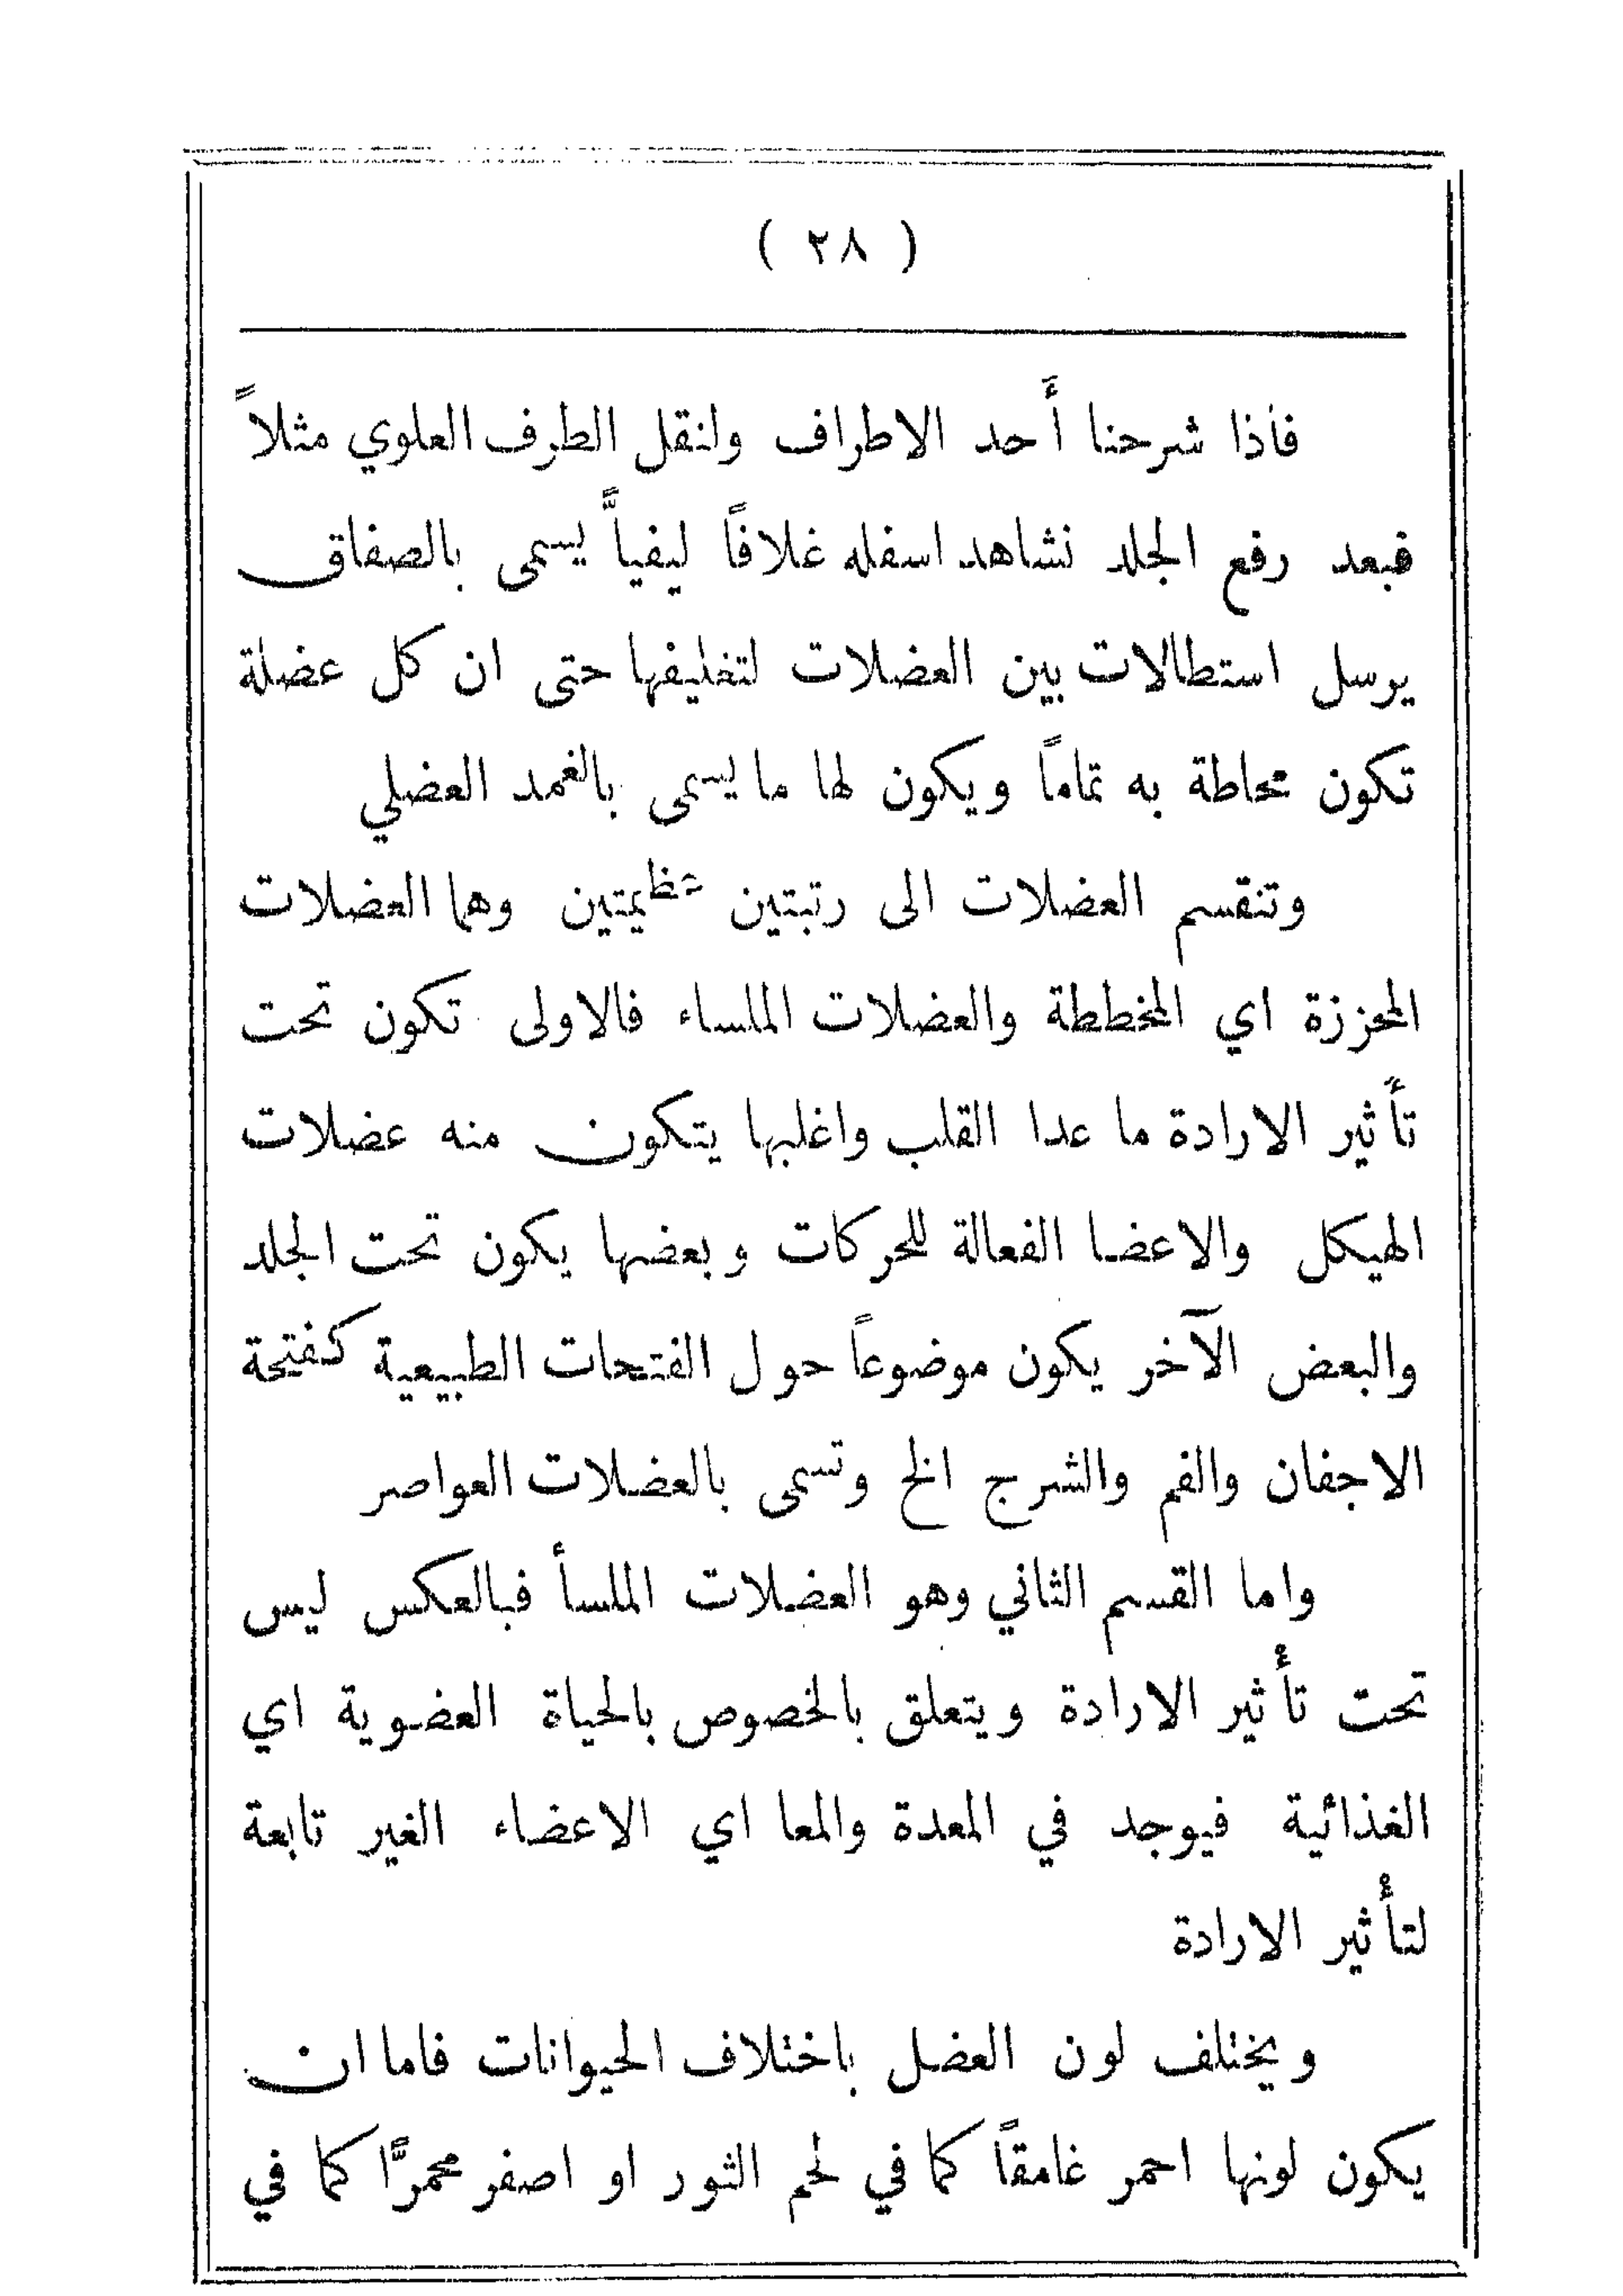 ( ٢٨ )
فأذا شرحنا أَحد الاطراف ولنقل الطرف العلوي مثلاً
فبعد رفع الجلد نشاهد اسفله غلافًا ليفياًّ يسمى بالصفاق
يرسل استطالات بين العضلات لتغليفها حتى ان كل عضلة
تكون محاطة به تمامًا ويكون لها ما يسمى بالغمد العضلي
وتنقسم العضلات الى رتبتين عظيمتين وهما العضلات
المحززة اي المخططة والعضلات الملساء فالاولى تكون تحت
تأثير الارادة ما عدا القلب واغلبها يتكون منه عضلات
الهيكل والاعضا الفعالة للحركات وبعضها يكون تحت الجلد
والبعض الآخر يكون موضوعاً حول الفتحات الطبيعية كفتحة
الاجفان والفم والشرج الخ وتسمى بالعضلات العواصر
واما القسم الثاني وهو العضلات الملسأ فبالعكس ليس
تحت تأثير الارادة ويتعلق بالخصوص بالحياة العضوية اي
الغذائية فيوجد في المعدة والمعا اي الاعضاء الغير تابعة
لتأثير الارادة
ويختلف لون العضل باختلاف الحيوانات فاما ان
يكون لونها احمر غامقاً كما في لحم الثور او اصفر محمرًّا كما في